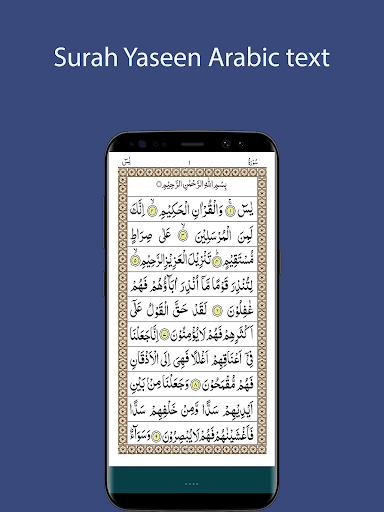 Surah Yaseen Arabic text
يٰسٓ ١ سُوْرَةُ
بِسْمِ اللهِ الرَّحْمٰنِ الرَّحِيْمِ
يٰسٓ ۝١ وَالْقُرْاٰنِ الْحَكِيْمِ ۝٢ اِنَّكَ
لَمِنَ الْمُرْسَلِيْنَ ۝٣ عَلٰى صِرَاطٍ
مُّسْتَقِيْمٍ ۝٤ تَنْزِيْلَ الْعَزِيْزِ الرَّحِيْمِ ۝٥
لِتُنْذِرَ قَوْمًا مَّاۤ اُنْذِرَ اٰبَآؤُهُمْ فَهُمْ
غٰفِلُوْنَ ۝٦ لَقَدْ حَقَّ الْقَوْلُ عَلٰٓى
اَكْثَرِهِمْ فَهُمْ لَا يُؤْمِنُوْنَ ۝٧ اِنَّا جَعَلْنَا
فِيْۤ اَعْنَاقِهِمْ اَغْلٰلًا فَهِيَ اِلَى الْاَذْقَانِ
فَهُمْ مُّقْمَحُوْنَ ۝٨ وَجَعَلْنَا مِنْۢ بَيْنِ
اَيْدِيْهِمْ سَدًّا وَّمِنْ خَلْفِهِمْ سَدًّا
فَاَغْشَيْنٰهُمْ فَهُمْ لَا يُبْصِرُوْنَ ۝٩ وَسَوَآءٌ